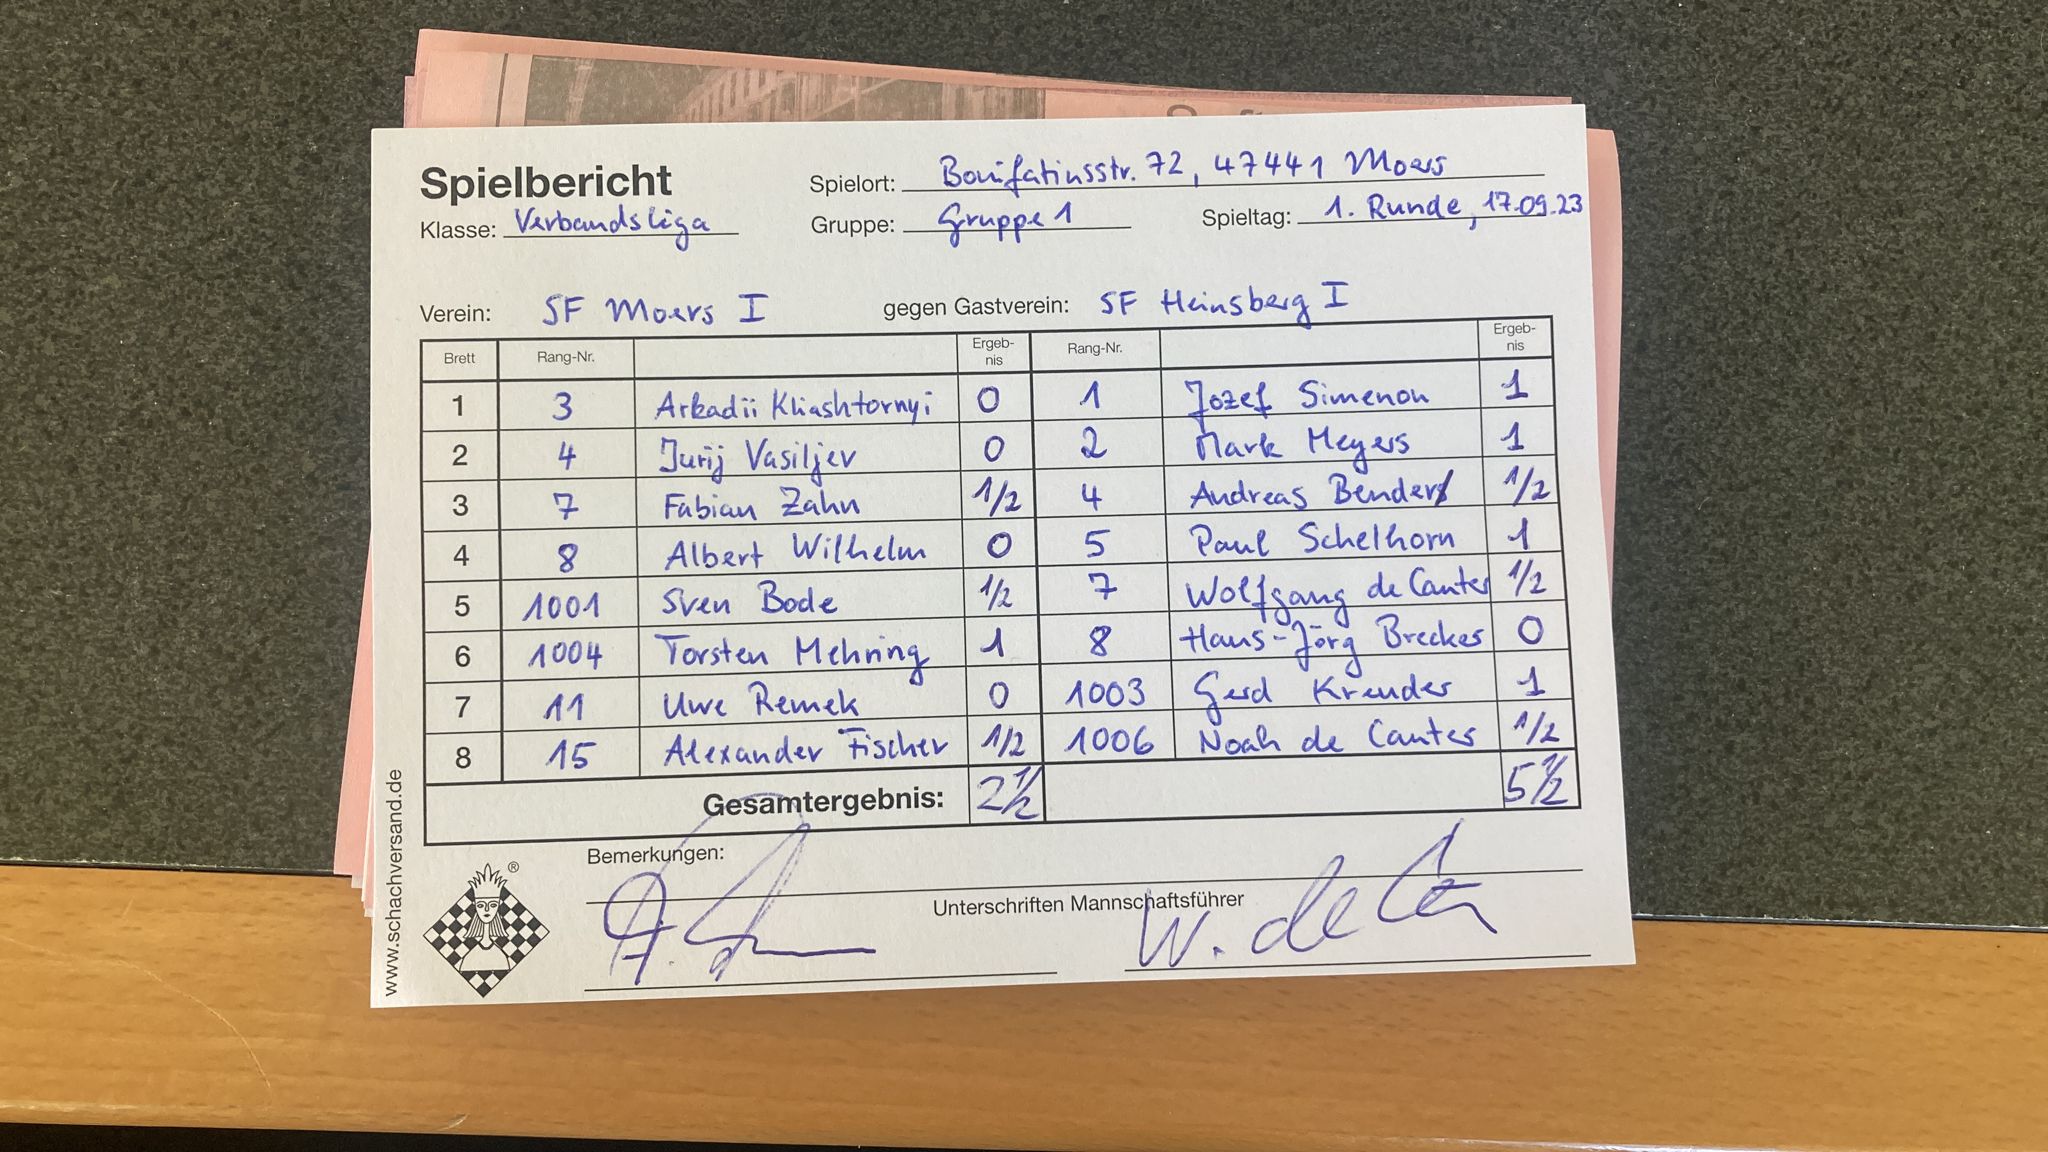 Spielbericht
Spielort: Bonifatiusstr. 72, 47441 Moers
Klasse: Verbandsliga Gruppe: Gruppe 1 Spieltag: 1. Runde, 17.09.23
Verein: SF Moers I gegen Gastverein: SF Heinsberg I
Brett Rang-Nr. Ergeb-nis Rang-Nr. Ergeb-nis
1 3 Arkadii Khashtornyi 0 1 Jozef Simenon 1
2 4 Jurij Vasiljev 0 2 Mark Meyers 1
3 7 Fabian Zahn 1/2 4 Andreas Bender 1/2
4 8 Albert Wilhelm 0 5 Paul Schelhorn 1
5 1001 Sven Bode 1/2 7 Wolfgang de Canter 1/2
6 1004 Torsten Mehring 1 8 Hans-Jörg Breckes 0
7 11 Uwe Remek 0 1003 Gerd Kreuder 1
8 15 Alexander Fischer 1/2 1006 Noah de Canter 1/2
Gesamtergebnis: 2 1/2 5 1/2
Bemerkungen:
Unterschriften Mannschaftsführer
W. de
www.schachversand.de
®